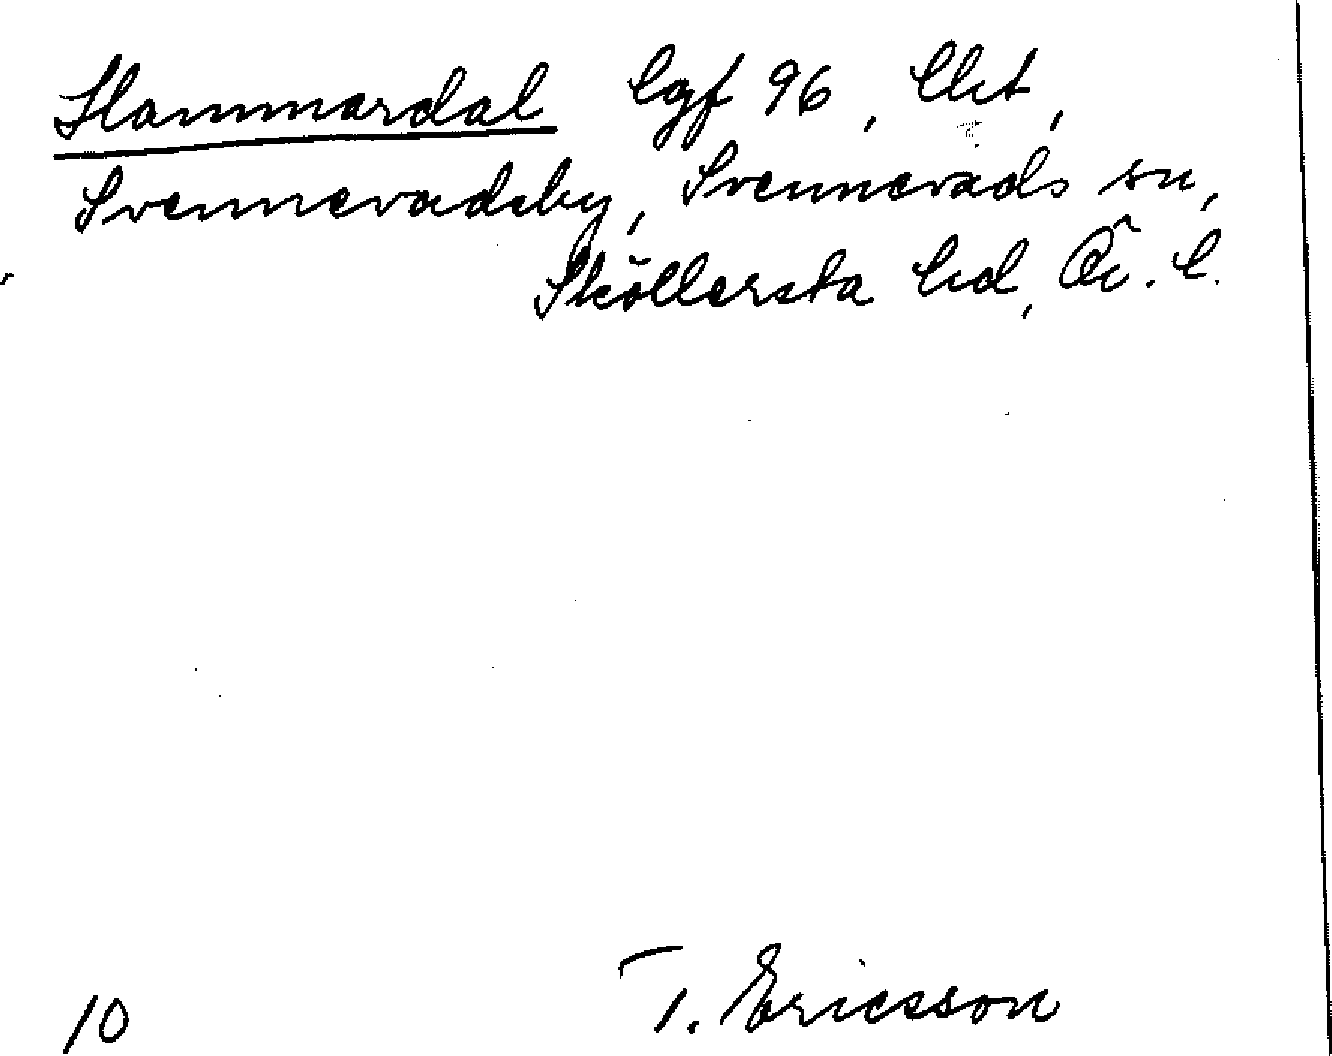 Hammardal lgf 96, lht,
Svennevadsby, Svennevads sn,
Sköllersta hd, Ör. l.
10 T. Ericsson